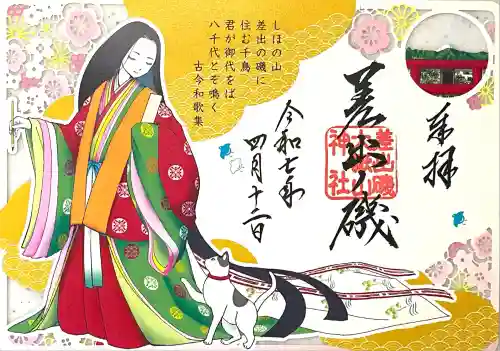 奉拝
差出ノ磯
差出磯
大嶽山
神社
令和七年
四月十二日
しほの山
差出の磯に
住む千鳥
君が御代をば
八千代とぞ鳴く
古今和歌集